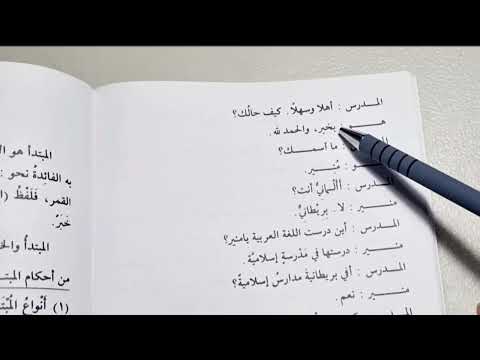 المـدرس : أهلا وسهلًا. كيف حالُك؟
هـو : بخير، والحمد لله.
: ما أسمـك؟
: مُنير.
المـدرس : أألمانيٌّ أنت؟
منير : لا.. بريْطانيٌّ.
المـدرس : أين درست اللغة العربية يامنير؟
منـير : درستها في مَدْرسةٍ إسلاميَّة.
المـدرس : أفي بريطانيةَ مدارسُ إسلاميةٌ؟
منـير : نعم.
المبتدأ هو
به الفائِدةُ نحو :
القمر، فَلَفْظُ
خَبَرٌ.
المبتدأُ
من أحكام
(١) أَنْواعُ